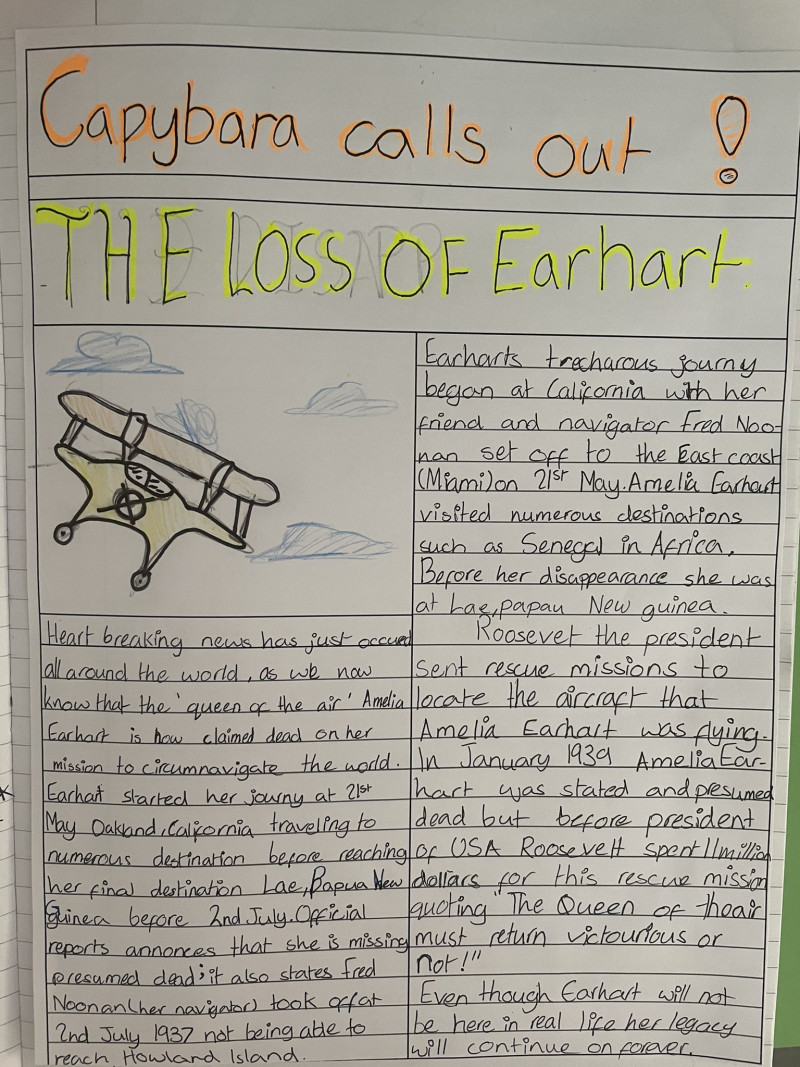 Capybara calls out !
THE LOSS OF Earhart.
Heart breaking news has just occued
all around the world, as we now
know that the 'queen of the air' Amelia
Earhart is now claimed dead on her
mission to circumnavigate the world.
Earhart started her journy at 21st
May Oakland, California traveling to
numerous destination before reaching
her final destination Lae, Papua New
Guinea before 2nd July. Official
reports annonces that she is missing
presumed dead; it also states Fred
Noonan (her navigator) took off at
2nd July 1937 not being able to
reach Howland Island.
Earharts trecharous journy
began at California with her
friend and navigator Fred Noo-
nan set off to the East coast
(Miami) on 21st May. Amelia Earhart
visited numerous destinations
such as Senegal in Africa.
Before her disappearance she was
at Lae, papau New guinea.
Roosevet the president
sent rescue missions to
locate the aircraft that
Amelia Earhart was flying.
In January 1939 Amelia Ear-
hart was stated and presumed
dead but before president
of USA Roosevelt spent 11million
dollars for this rescue mission
quoting "The Queen of thoair
must return victourious or
not!"
Even though Earhart will not
be here in real life her legacy
will continue on forever.